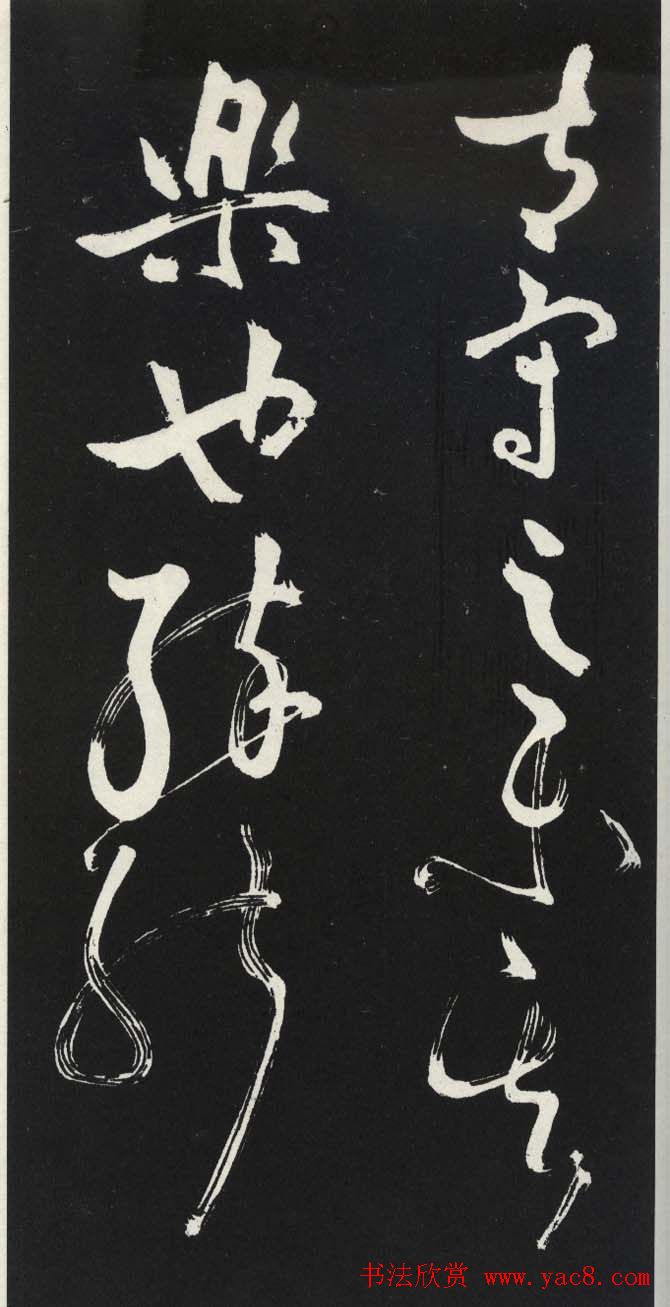 太守之樂其
樂也醉能
书法欣赏 www.yac8.com